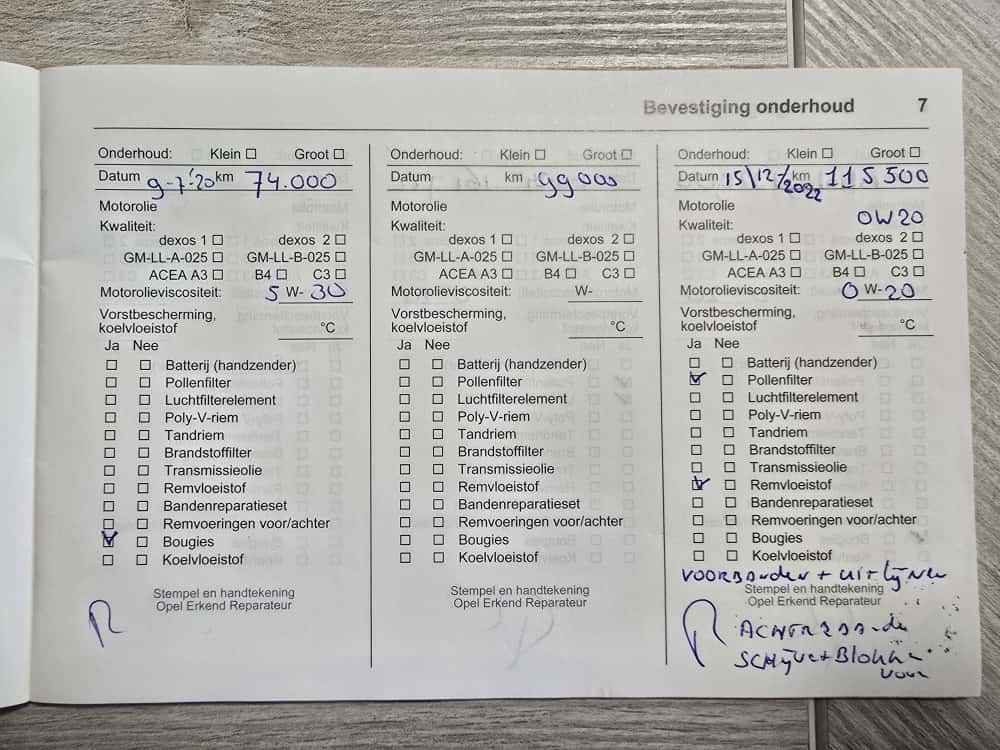 Bevestiging onderhoud 7
Onderhoud: Klein ☐ Groot ☐
Datum 9-7-'20 km 74.000
Motorolie
Kwaliteit:
dexos 1 ☐ dexos 2 ☐
GM-LL-A-025 ☐ GM-LL-B-025 ☐
ACEA A3 ☐ B4 ☐ C3 ☐
Motorolieviscositeit: 5 W- 30
Vorstbescherming,
koelvloeistof °C
Ja Nee
☐ ☐ Batterij (handzender)
☐ ☐ Pollenfilter
☐ ☐ Luchtfilterelement
☐ ☐ Poly-V-riem
☐ ☐ Tandriem
☐ ☐ Brandstoffilter
☐ ☐ Transmissieolie
☐ ☐ Remvloeistof
☐ ☐ Bandenreparatieset
☐ ☐ Remvoeringen voor/achter
☑ ☐ Bougies
☐ ☐ Koelvloeistof
Stempel en handtekening
Opel Erkend Reparateur
Onderhoud: Klein ☐ Groot ☐
Datum km 99000
Motorolie
Kwaliteit:
dexos 1 ☐ dexos 2 ☐
GM-LL-A-025 ☐ GM-LL-B-025 ☐
ACEA A3 ☐ B4 ☐ C3 ☐
Motorolieviscositeit: W-
Vorstbescherming,
koelvloeistof °C
Ja Nee
☐ ☐ Batterij (handzender)
☐ ☐ Pollenfilter
☐ ☐ Luchtfilterelement
☐ ☐ Poly-V-riem
☐ ☐ Tandriem
☐ ☐ Brandstoffilter
☐ ☐ Transmissieolie
☐ ☐ Remvloeistof
☐ ☐ Bandenreparatieset
☐ ☐ Remvoeringen voor/achter
☐ ☐ Bougies
☐ ☐ Koelvloeistof
Stempel en handtekening
Opel Erkend Reparateur
Onderhoud: Klein ☐ Groot ☐
Datum 15/12/2022 km 115500
Motorolie
Kwaliteit: 0W20
dexos 1 ☐ dexos 2 ☐
GM-LL-A-025 ☐ GM-LL-B-025 ☐
ACEA A3 ☐ B4 ☐ C3 ☐
Motorolieviscositeit: 0 W- 20
Vorstbescherming,
koelvloeistof °C
Ja Nee
☐ ☐ Batterij (handzender)
☑ ☐ Pollenfilter
☐ ☐ Luchtfilterelement
☐ ☐ Poly-V-riem
☐ ☐ Tandriem
☐ ☐ Brandstoffilter
☐ ☐ Transmissieolie
☑ ☐ Remvloeistof
☐ ☐ Bandenreparatieset
☐ ☐ Remvoeringen voor/achter
☐ ☐ Bougies
☐ ☐ Koelvloeistof
VOORBANDEN + uitlijnen
Stempel en handtekening
Opel Erkend Reparateur
SCHIJVE + BLOKKEN
voor